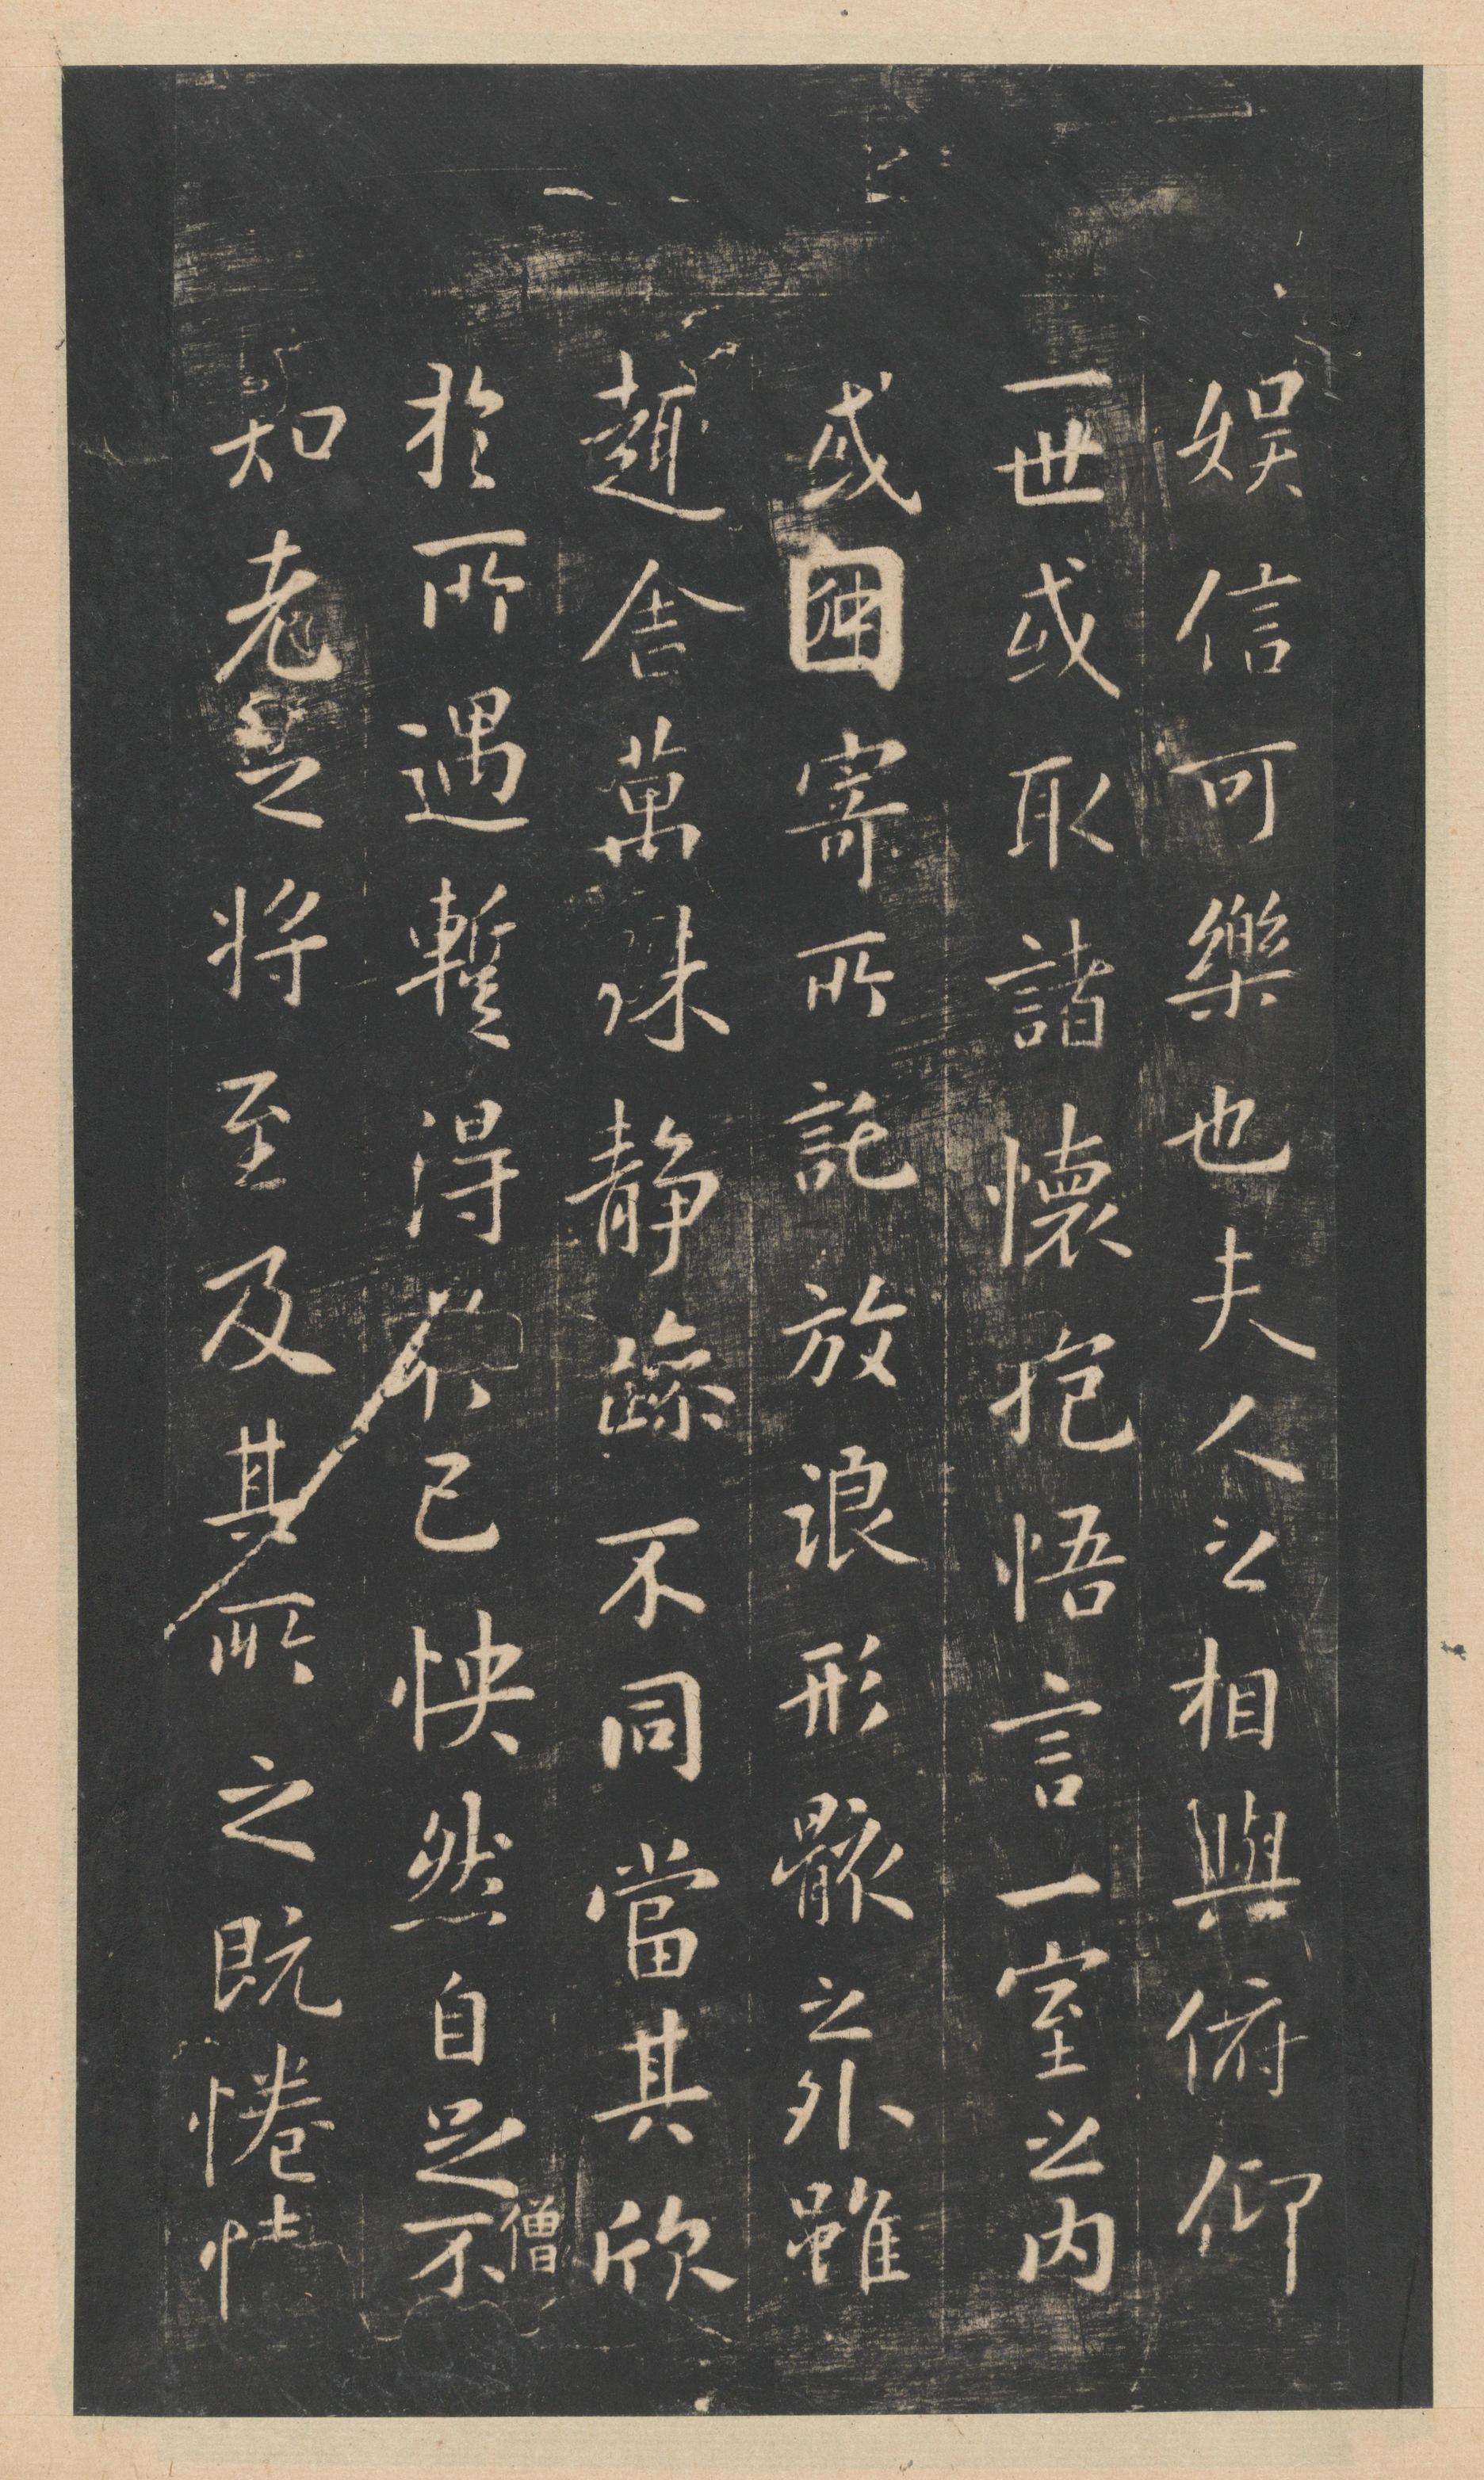 娱信可樂也夫人之相與俯仰
一世或取諸懷抱悟言一室之内
或因寄所託放浪形骸之外雖
趣舍萬殊静躁不同當其欣
於所遇蹔得於己怏然自足不
僧
知老之将至及其所之既惓情